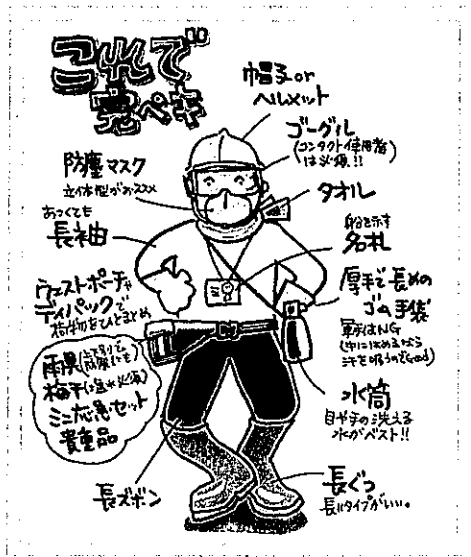 これで
完ペキ
帽子or
ヘルメット
ゴーグル
(コンタクト使用者
は必須!!)
防塵マスク
立体型がおススメ
タオル
あつくても
長袖
身分を示す
名札
ウエストポーチや
ディパックで
荷物をひとまとめ
厚手で長めの
ゴム手袋
軍手はNG
(中にはめるなら
汗を吸うのでGood)
雨具
梅干(塩水必須)
ミニ応急セット
貴重品
水筒
目や手の洗える
水がベスト!!
長ズボン
長ぐつ
長いタイプがいい。